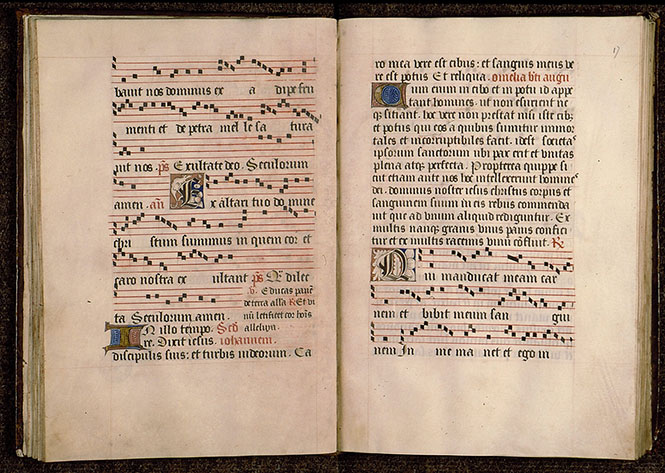 bauit nos dominus ex a dipe fru
menti et de petra mel le sa tura
uit nos. ps Exultate deo. Seculorum
amen. an Ex altari tuo do mine
chri stum sumimus in quem cor et
caro nostra ex ultant ps Q̄ dilec
v. Educas panē
de terra alla R Et vi
ta Seculorum amen. nū letificet cor hoīs
IN illo tempo. Scd alleluya.
re. Dixit iesus. iohannem.
discipulis suis: et turbis iudeorum. Ca
17
ro mea vere est cibus: et sanguis meus ve
re est potus Et reliqua. omelia bti augu
Cum enim cibo et in potu id appe
tant homines. ut non esuriant ne
q̄ sitiant. hoc vere non prestat nisi iste cib;
et potus qui eos a quibus sumitur immor
tales et incorruptibiles facit. idest societas
ipsorum sanctorum ubi pax erit et unitas
plena atq; perfecta. Propterea quippe si
cut etiam ante nos hoc intellexerunt homines
dei. dominus noster iesus christus corpus et
sanguinem suum in eis rebus commenda
uit que ad unum aliquid rediguntur. Ex
multis nanq; granis unus panis confici
tur et ex multis racemis vinū cōfluit. R
Qui manducat meam car
nem et bibit meum san gui
nem In me ma net et ego in